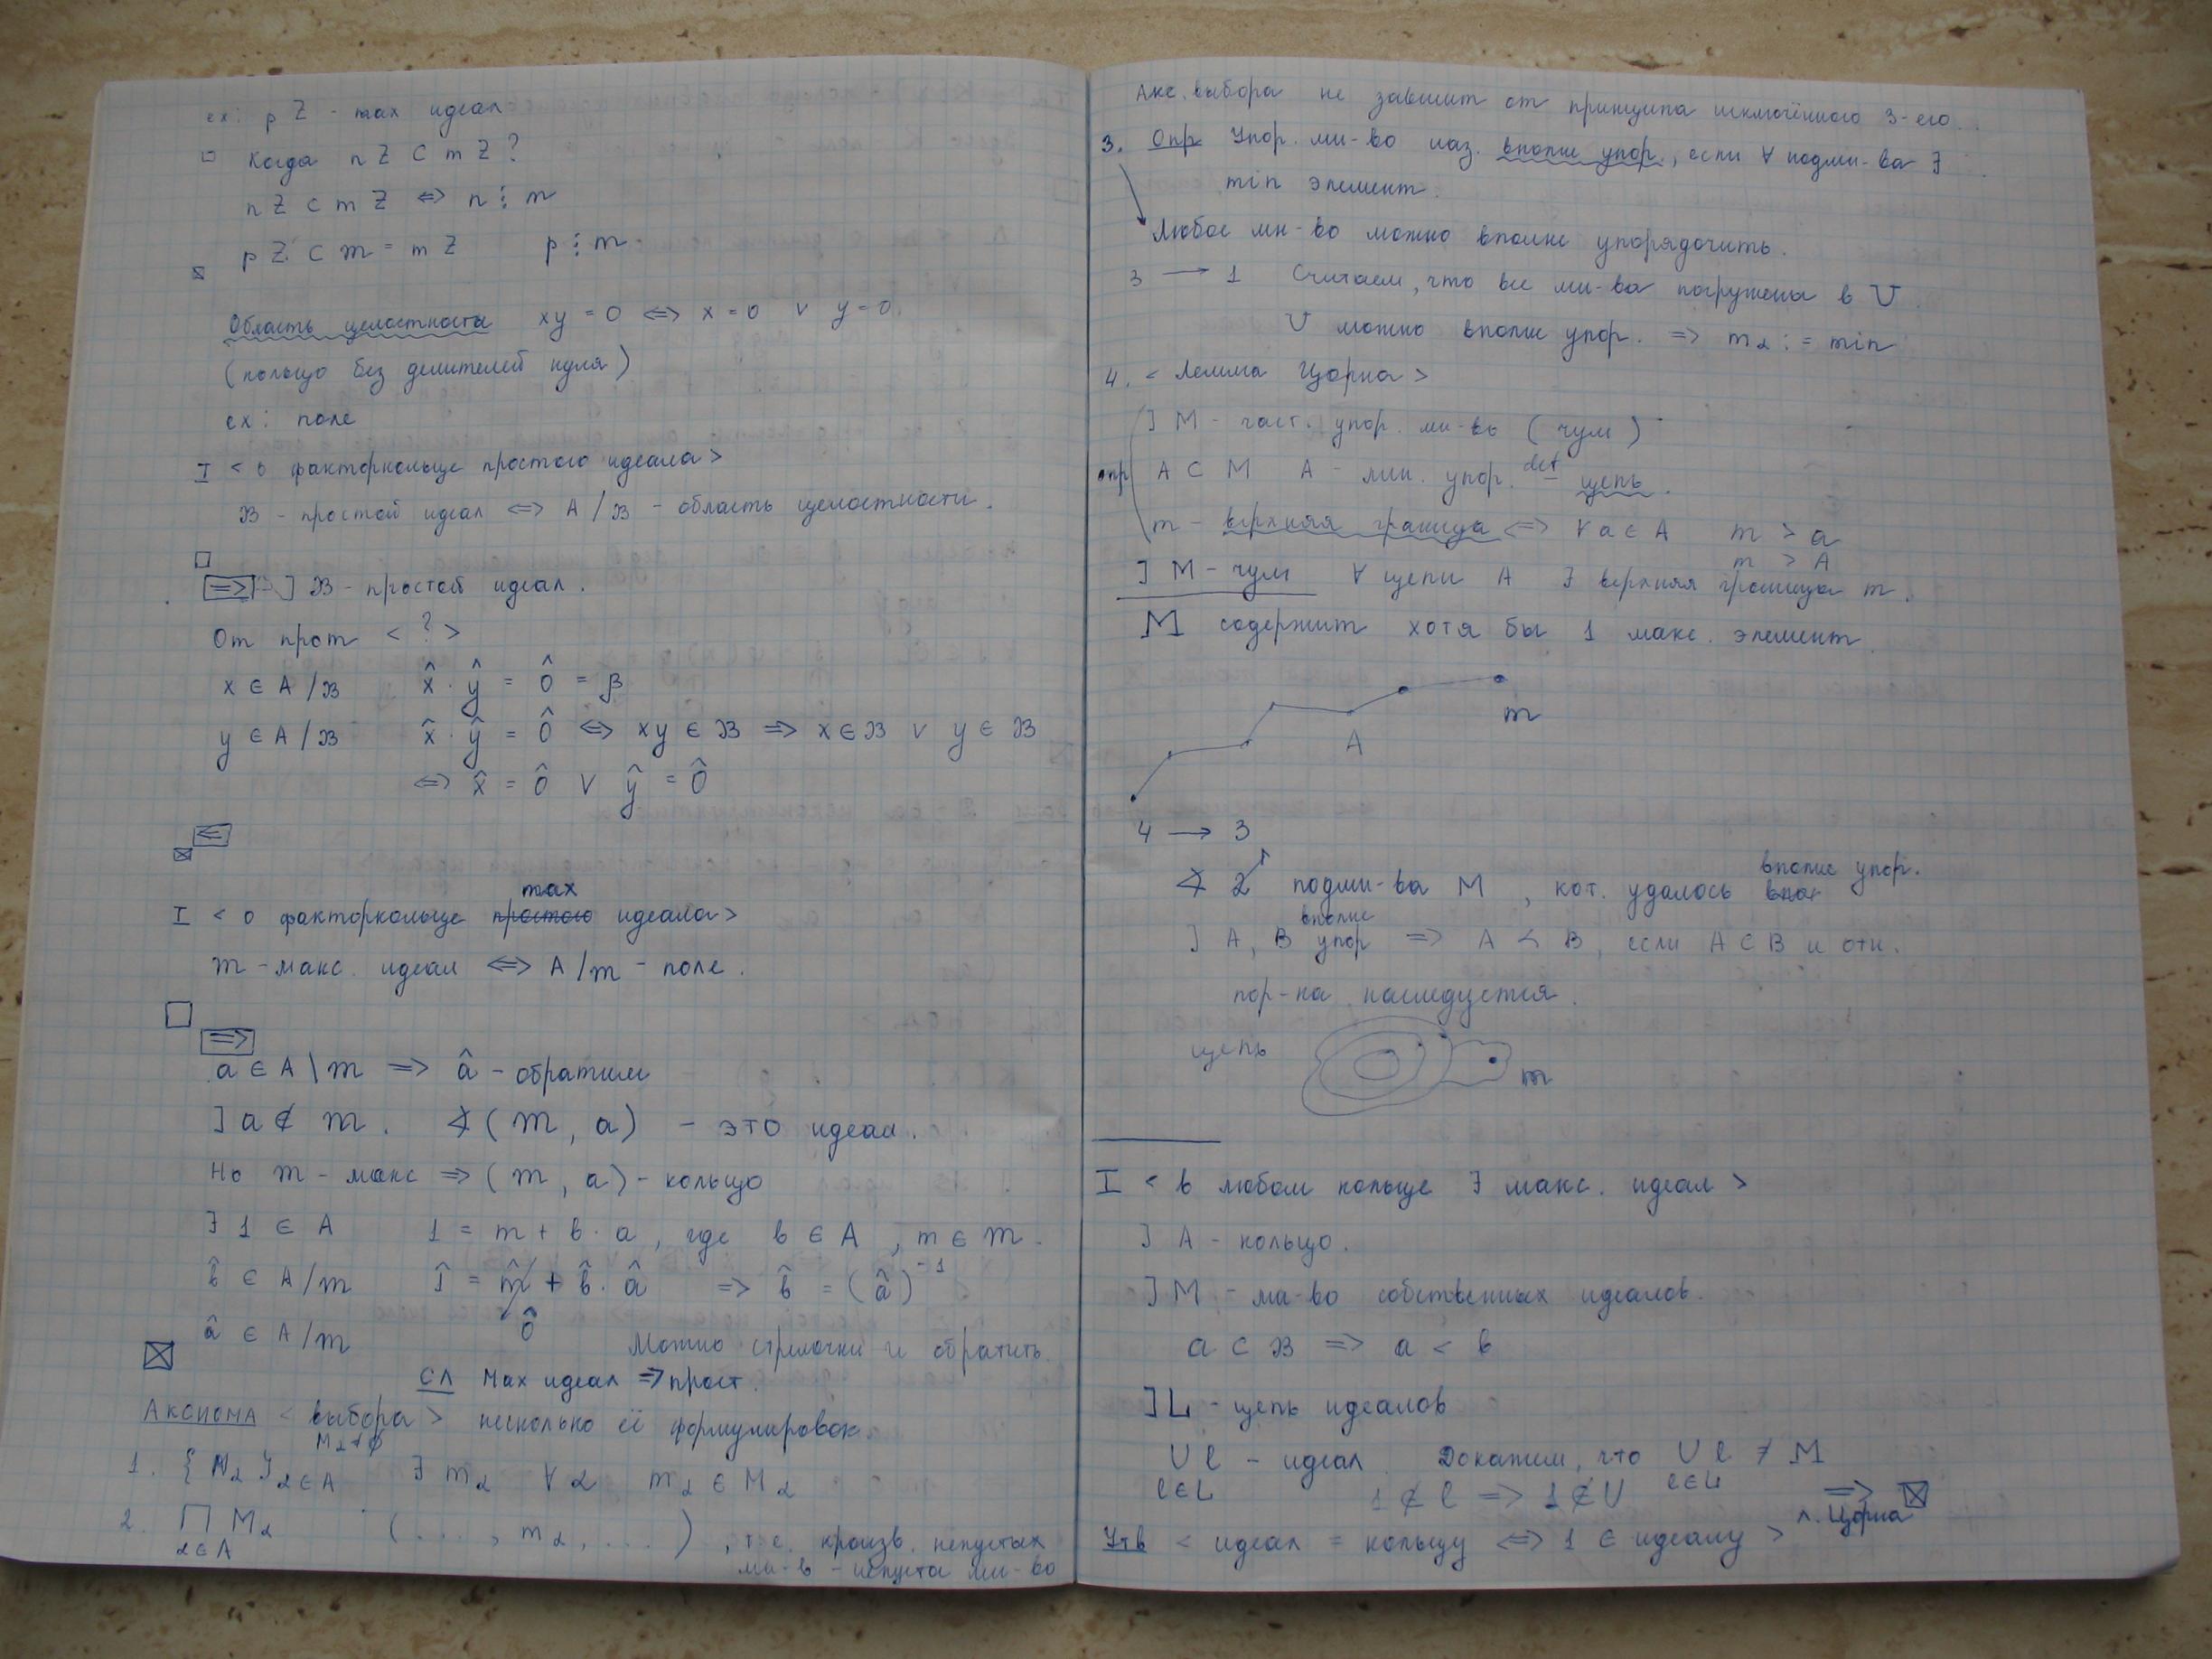 ex: pZ - max идеал
Когда nZ ⊂ mZ ?
nZ ⊂ mZ ⟺ n ⋮ m
pZ ⊂ m = mZ p ⋮ m
Область целостности xy = 0 ⟺ x = 0 ∨ y = 0
(кольцо без делителей нуля)
ex: поле
T < о факторкольце простого идеала >
B - простой идеал ⟺ A / B - область целостности.
⇒ ] B - простой идеал.
От прот < ? >
x ∈ A / B x̂ · ŷ = 0̂ = β
y ∈ A / B x̂ · ŷ = 0̂ ⟺ xy ∈ B ⇒ x ∈ B ∨ y ∈ B
⟺ x̂ = 0̂ ∨ ŷ = 0̂
⇐
max
T < о факторкольце простого идеала >
m - макс. идеал ⟺ A / m - поле.
⇒
a ∈ A \ m ⇒ â - обратим
] a ∉ m. ∢ (m, a) - это идеал.
Но m - макс ⇒ (m, a) - кольцо
∃ 1 ∈ A 1 = m + b · a, где b ∈ A, m ∈ m.
b̂ ∈ A / m 1̂ = m̂ + b̂ · â ⇒ b̂ = (â)⁻¹
â ∈ A / m 0̂
Можно стрелочки и обратить.
СЛ Max идеал ⇒ прост.
Аксиома < выбора > несколько её формулировок
Mα ≠ ∅
1. {Mα}α∈A ∃ mα ∀ α mα ∈ Mα
2. ∏ Mα (..., mα, ...), т.е. произв. непустых
α∈A
мн-в - непусто мн-во
Акс. выбора не зависит от принципа исключённого 3-его.
3. Опр Упор. мн-во наз. вполне упор., если ∀ подмн-ва ∃
min элемент.
Любое мн-во можно вполне упорядочить.
3 → 1 Считаем, что все мн-ва погружены в U.
U можно вполне упор. ⇒ mα := min
4. < Лемма Цорна >
] M - част. упор. мн-во (чум)
опр A ⊂ M A - лин. упор. def = цепь.
m - верхняя граница ⟺ ∀ a ∈ A m > a
m > A
] M - чум ∀ цепи A ∃ верхняя граница m.
M содержит хотя бы 1 макс. элемент.
m
A
4 → 3
вполне упор.
∢ 2 подмн-ва M, кот. удалось
вполне
] A, B упор ⇒ A < B, если A ⊂ B и отн.
пор-ка наследуется.
цепь
m
T < в любом кольце ∃ макс. идеал >
] A - кольцо.
] M - мн-во собственных идеалов.
a ⊂ B ⇒ a < b
] L - цепь идеалов
∪ l - идеал. Докажем, что ∪ l ≠ M
l∈L 1 ∉ l ⇒ 1 ∉ ∪ l∈L ⇒
л. Цорна
Утв < идеал = кольцу ⟺ 1 ∈ идеалу >